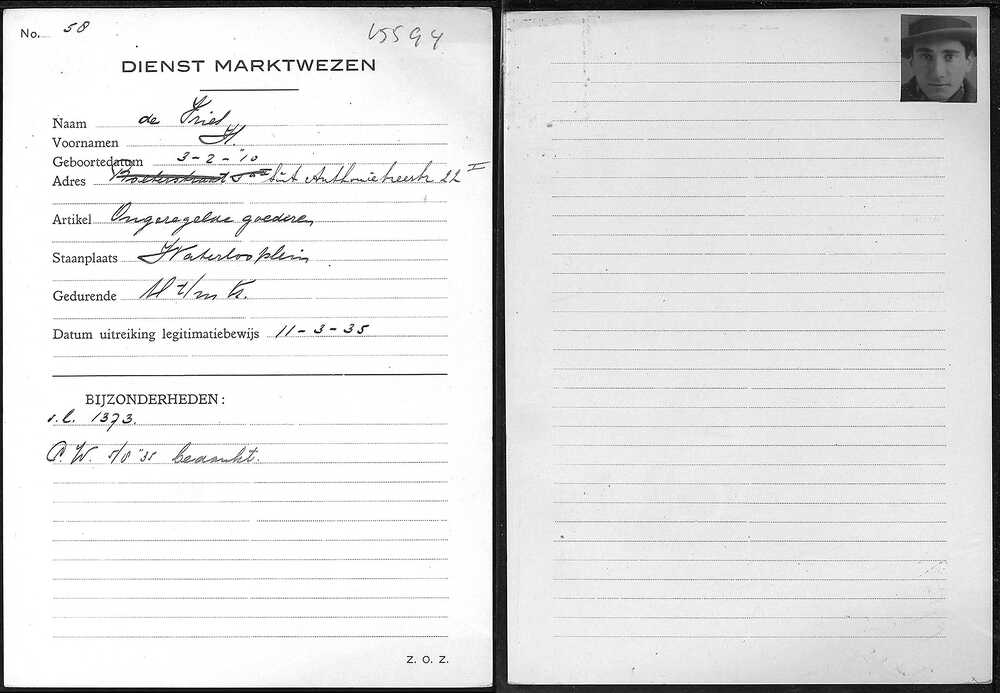 No. 58
DIENST MARKTWEZEN
Naam de Vries
Voornamen H.
Geboortedatum 3-2-'10
Adres Sint Anthoniebreestr 22 II
Artikel Ongeregelde goederen
Staanplaats Waterlooplein
Gedurende M t/m V.
Datum uitreiking legitimatiebewijs 11-3-35
BIJZONDERHEDEN:
v.l. 1373.
C.W. 5/8 '35 bedankt.
Z. O. Z.